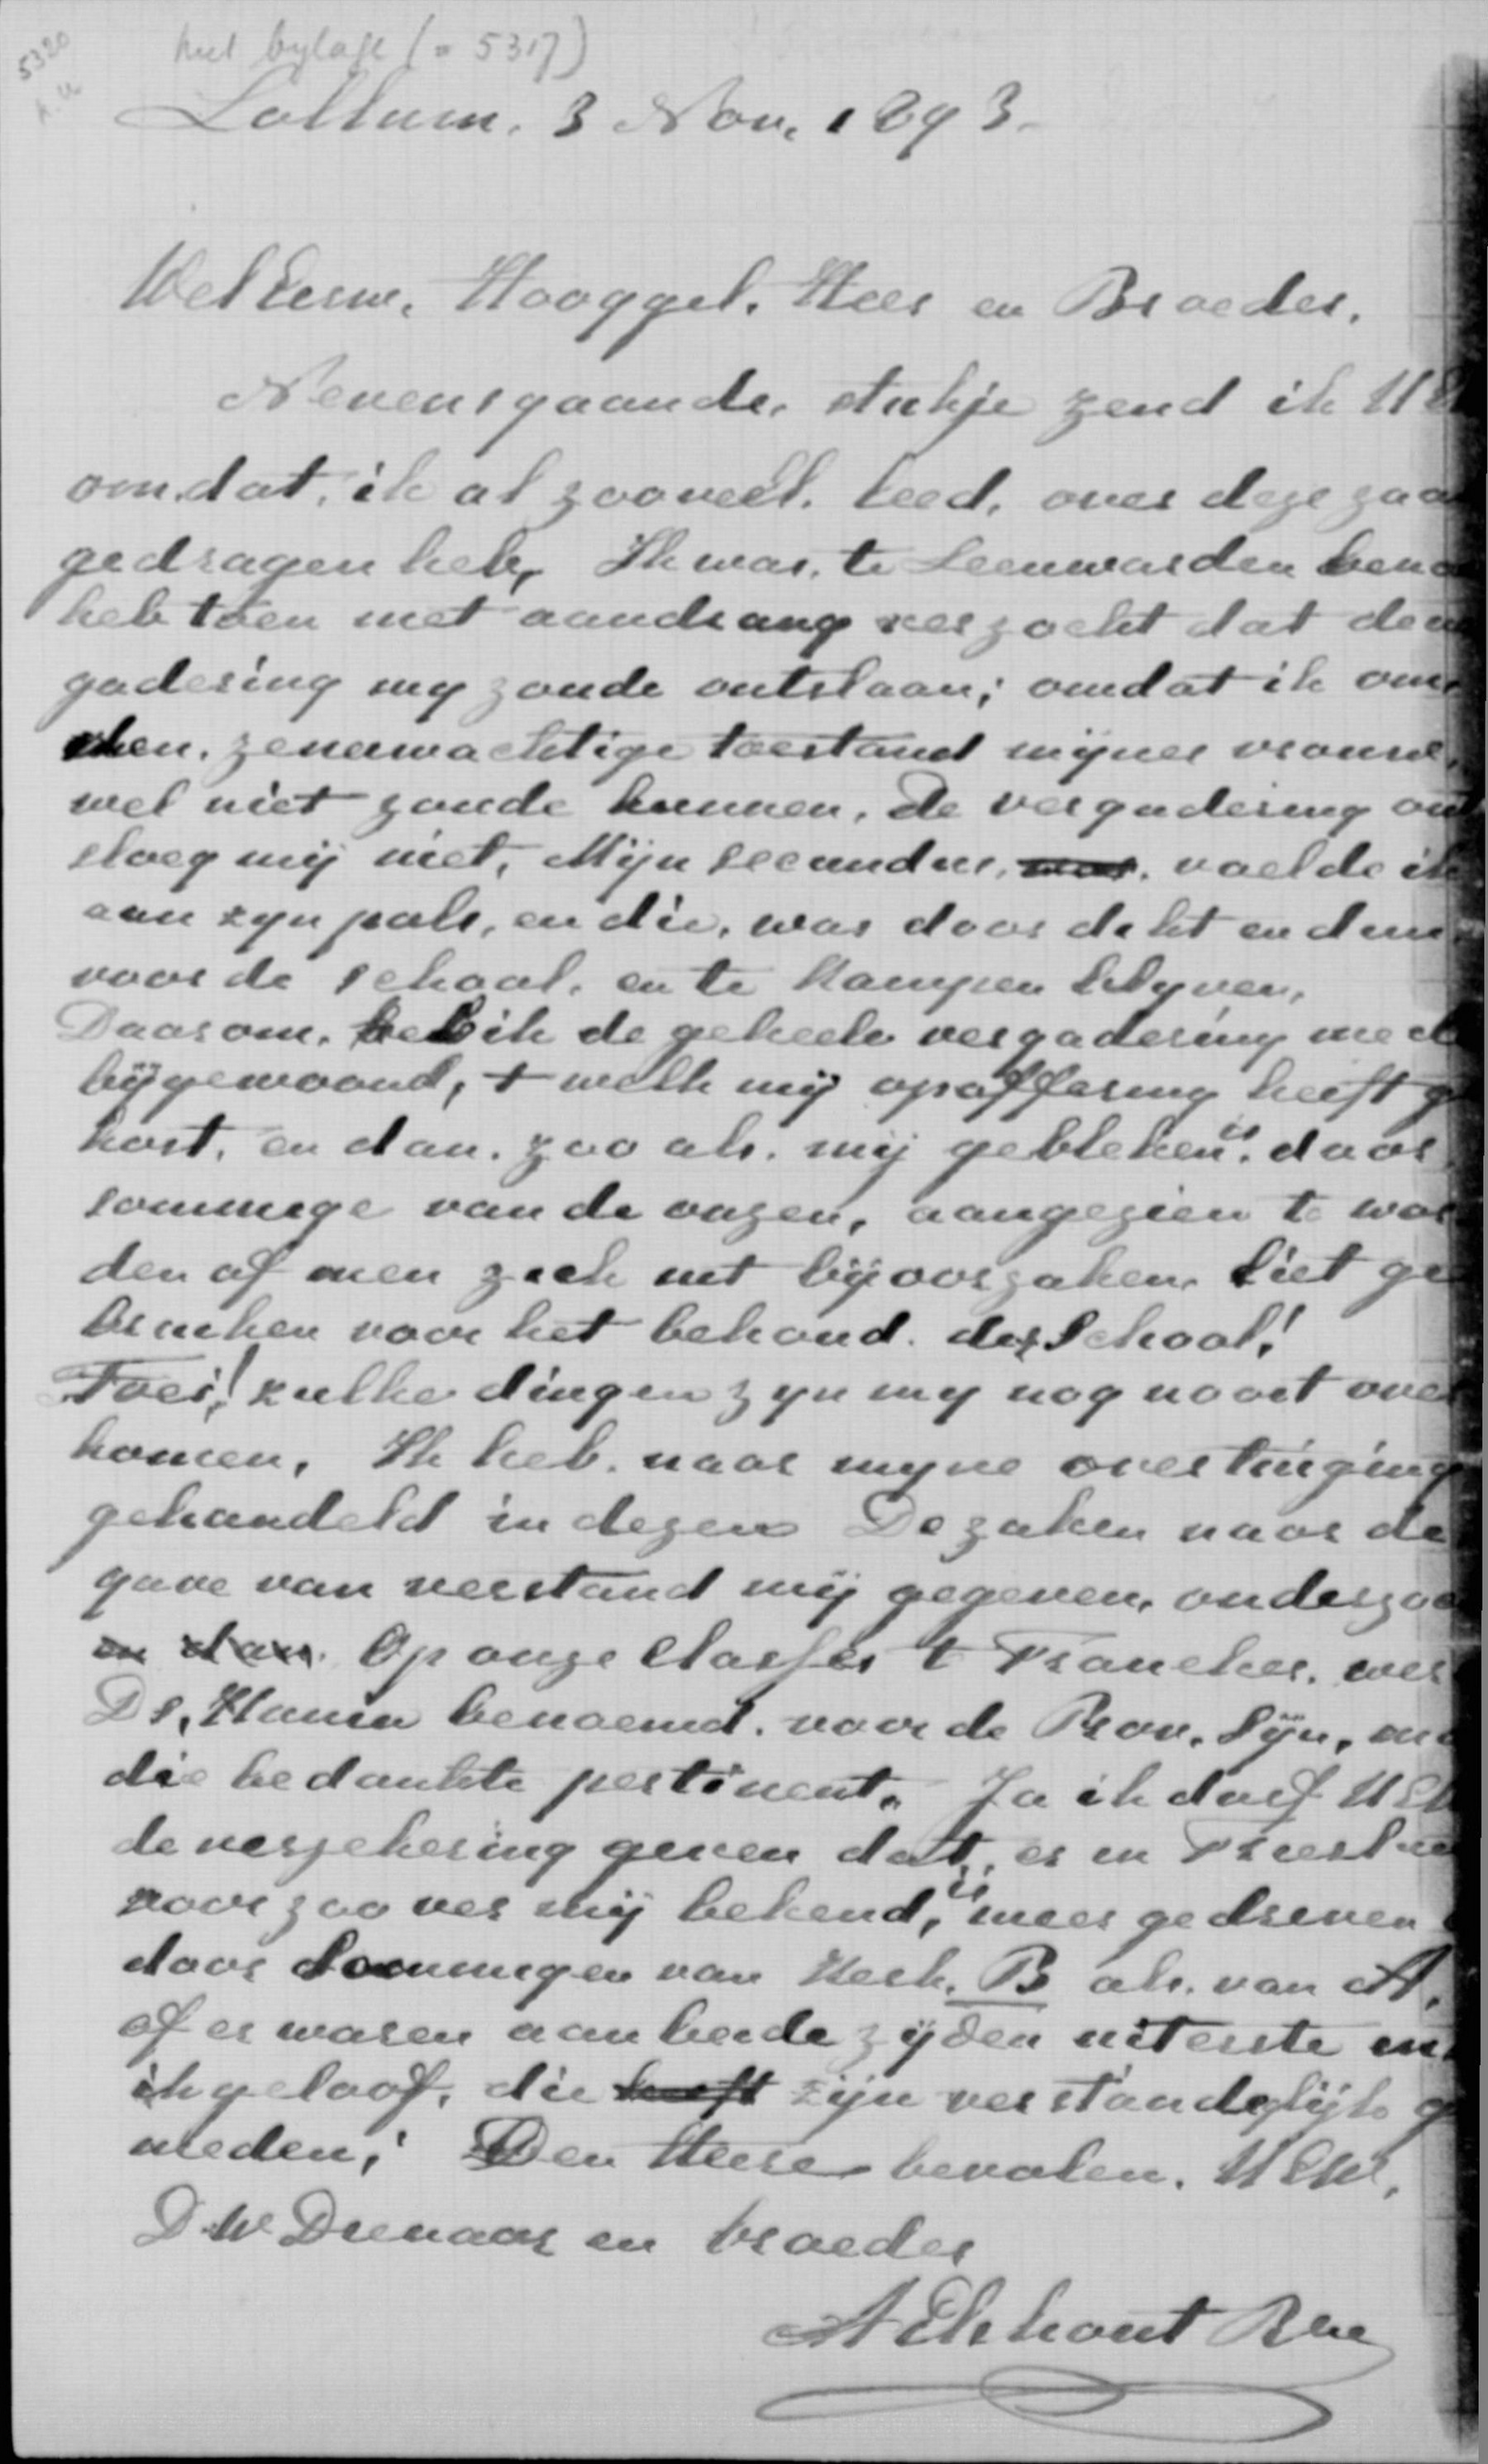 5320
met bylage (= 5317)
Lollum, 3 Nov. 1893.
WelEerw. Hooggel. Heer en Broeder.
Nevensgaande, stukje zend ik UE
omdat, ik al zooveel, leed, over deze zaa
gedragen heb, Ik was, te Leeuwarden beno
heb toen met aandrang verzocht dat de v
gadering my zoude ontslaan; omdat ik om
den, zenuwachtige toestand mijner vrouw,
wel niet zoude kunnen, De vergadering ont
sloeg mij niet, Mijn secundus, was, voelde ik
aan zyn pols, en die, was door dik en dun
voor de school, en te Kampen blyven,
Daarom, heb ik de geheele vergadering med
bijgewoond, t welk mij opoffering heeft g
kost, en dan, zoo als, mij gebleken is, door
sommige van de onzen, aangezien te wor
den of men zich uit bijoorzaken, liet ge
bruiken voor het behoud der School!
Foei! zulke dingen zyn my nog nooit over
komen, Ik heb, naar myne overtuiging
gehandeld in dezen De zaken naar de
gave van verstand mij gegeven, onderzoc
en dan. Op onze Classes t Franeker, wer
Ds, Hania benoemd, voor de Prov. Syn, ma
die bedankte pertinent, Ja ik durf UEW
de verzekering geven dat, er in Frieslan
voor zoo ver mij bekend, is meer gedreven
door sommigen van Kerk, B als, van A,
of er waren aan beide zijden uiterste en,
ik geloof, die heeft zijn verstandelijk g
meden; Den Heere bevolen, UEW,
D.W Dienaar en broeder
A Elshout Bzn